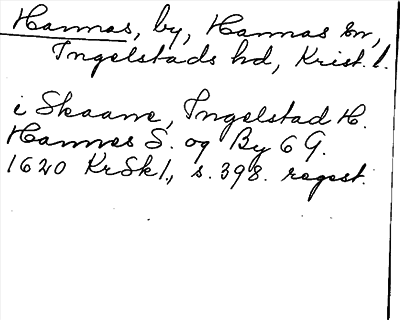 Hannas, by, Hannas sn,
Ingelstads hd, Krist. l.
i Skaane, Ingelstad H.
Hannes S. og By 6 G.
1620 KrSkl., s. 398. regest.